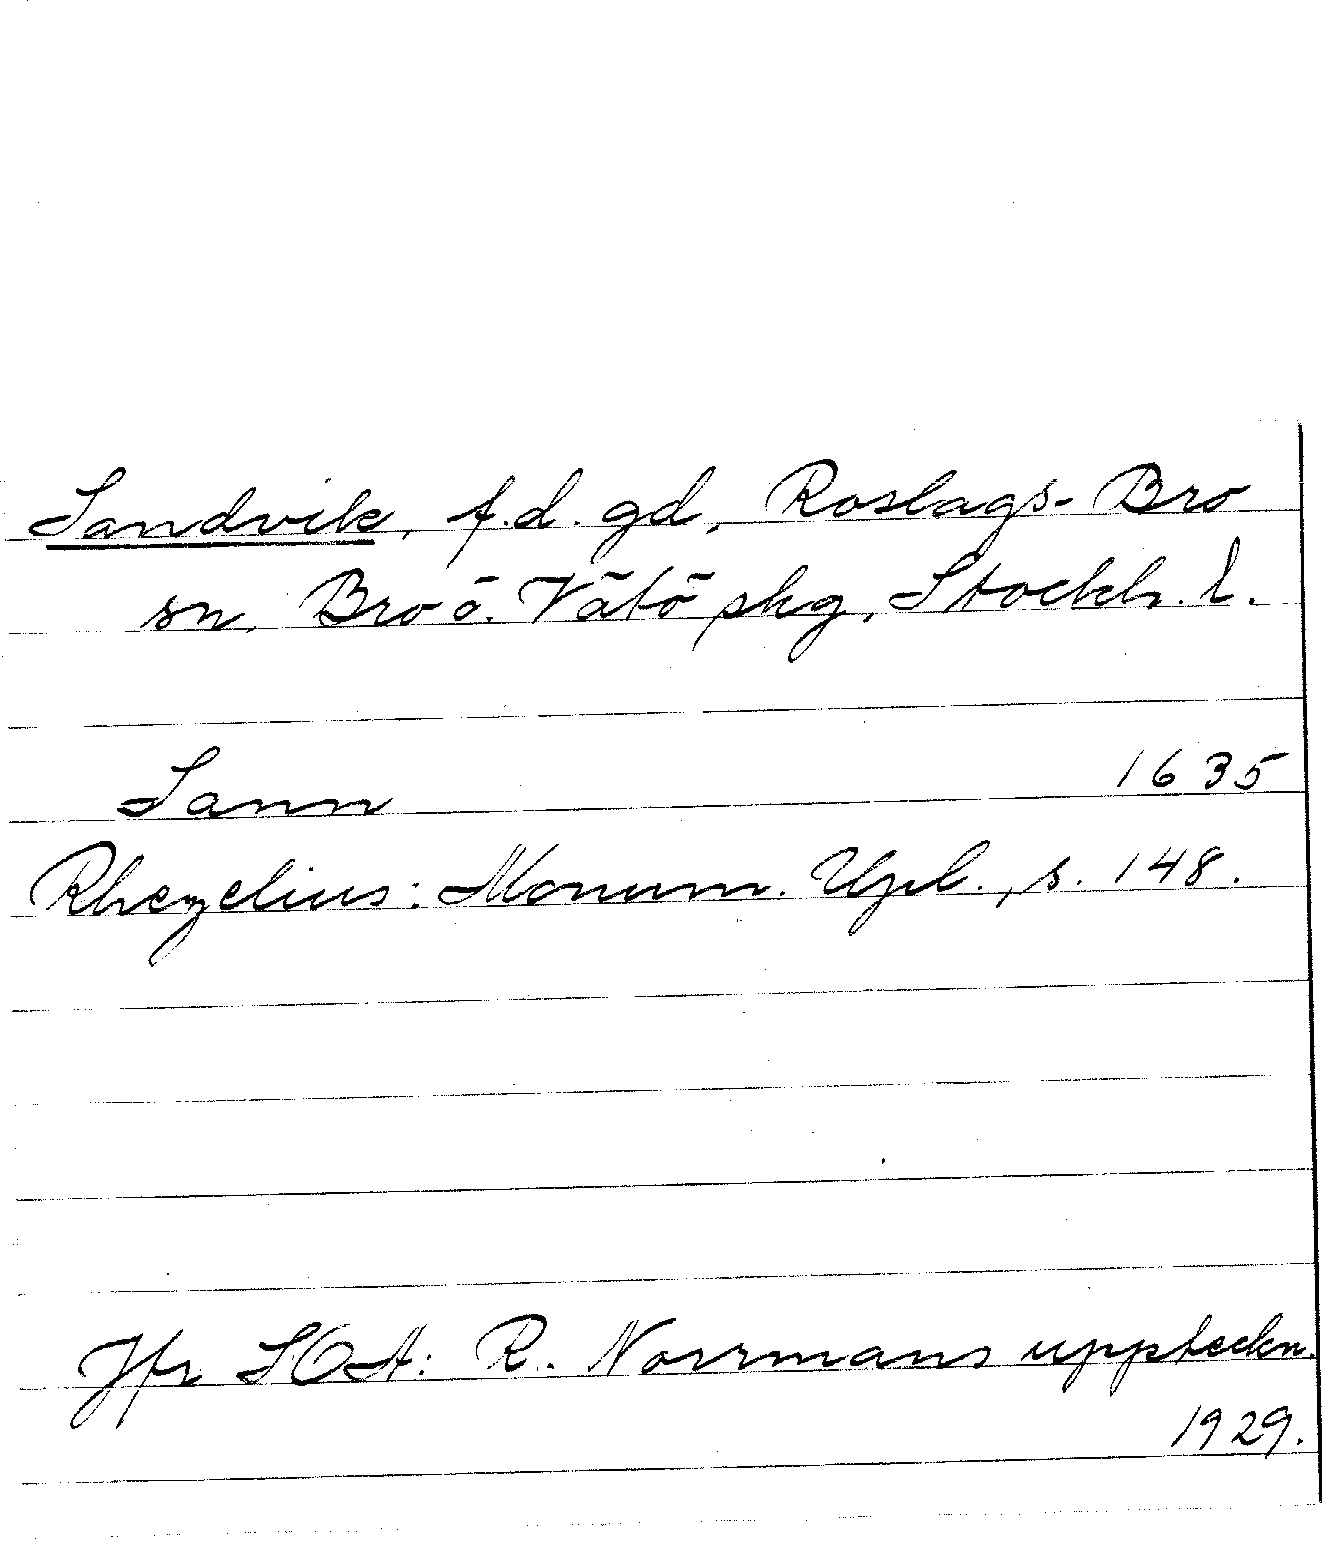 Sandvik, f.d. gd, Roslags-Bro
sn, Bro o. Vätö skg, Stockh. l.
Sann 1635
Rhezelius: Monum. Upl., s. 148.
Jfr SOA: R. Norrmans uppteckn.
1929.